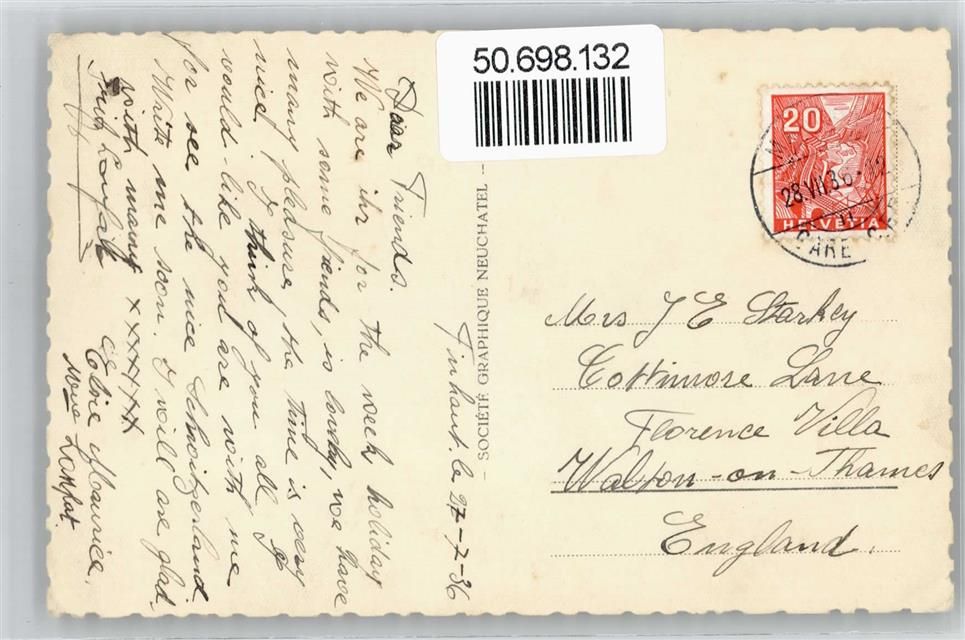 50.698.132
20
HELVETIA
28.VII.36
GARE
SOCIÉTÉ GRAPHIQUE NEUCHATEL
Finhaut. le 27-7-36
Dear Friends.
We are ihr for the week holiday
with some friends, is lovely, we have
many pleasure, the time is very
nice. I think of you all. I
would-like your are with me
for see the nice Schwizerland.
Write me soon. I will are glad.
with many xxxxxxx
Elsie Maurice.
Mrs J E Starkey
Cottimore Lane
Florence Villa
Walton-on-Thames
England.